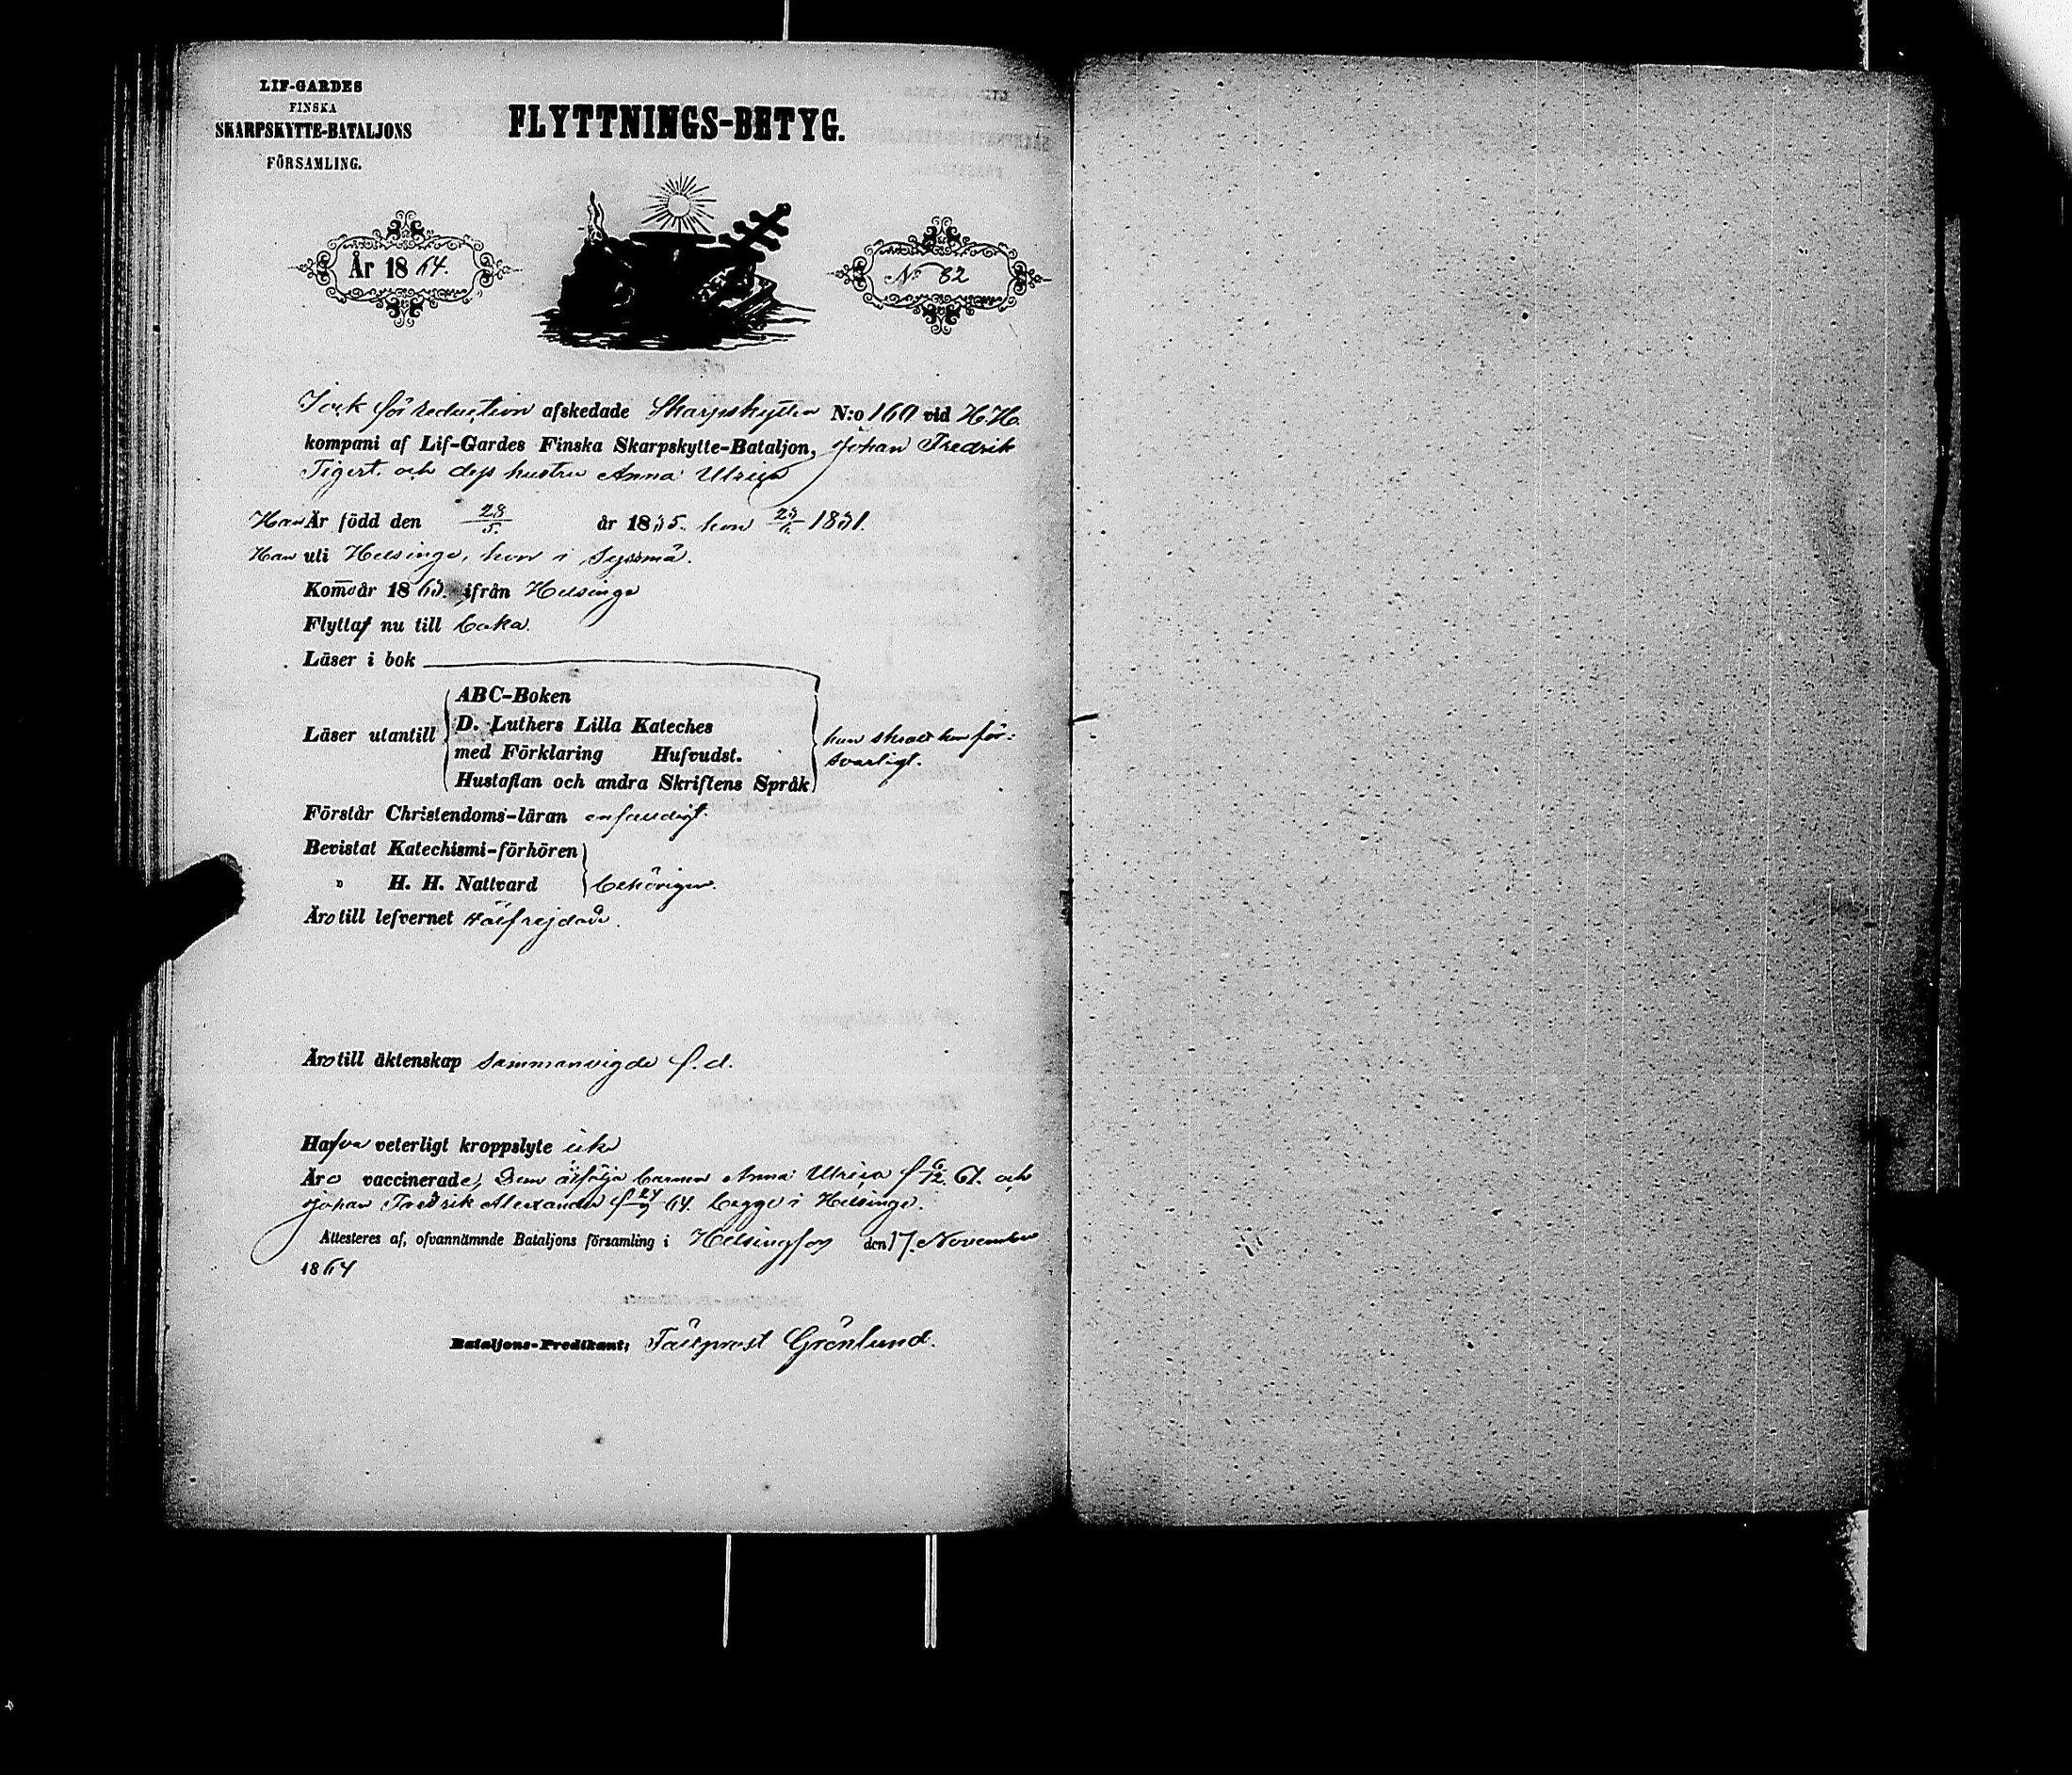 LIF-GARDES
FINSKA
SKARPSKYTTE-BATALJONS
FÖRSAMLING.
FLYTTNINGS-BETYG.
År 1864.
No 82
för reduction afskedade Skarpskytten N:o 160 vid H.H.
kompani af Lif-Gardes Finska Skarpskytte-Bataljon, Johan Fredrik
Tigert. och dess hustru Anna Ulrica
Han Är född den 28/5. år 1835. hon 1831.
Han uli Helsinge, hon i Sysmä.
Kommo år 1863. ifrån Helsinge
Flytta nu till
Läser i bok
Läser utantill
ABC-Boken
D. Luthers Lilla Kateches
med Förklaring Hufvudst.
Hustaflan och andra Skriftens Språk
han hon för-
svarligt.
Förstår Christendoms-läran enfaldigt.
Bevistat Katechismi-förhören
" H. H. Nattvard
behörigen.
Äro till lefvernet välfrejdade.
Äro till äktenskap sammanvigde f. d.
Hafva veterligt kroppslyte icke
Äro vaccinerade, Dem åtfölja barnen Anna Ulrica f 6/12. 61. och
Johan Fredrik Alexander f 64. begge i Helsinge.
Attesteres af, ofvannämnde Bataljons församling i Helsingfors den 17. November
1864
Bataljons-Predikant; Fältprost Grönlund.